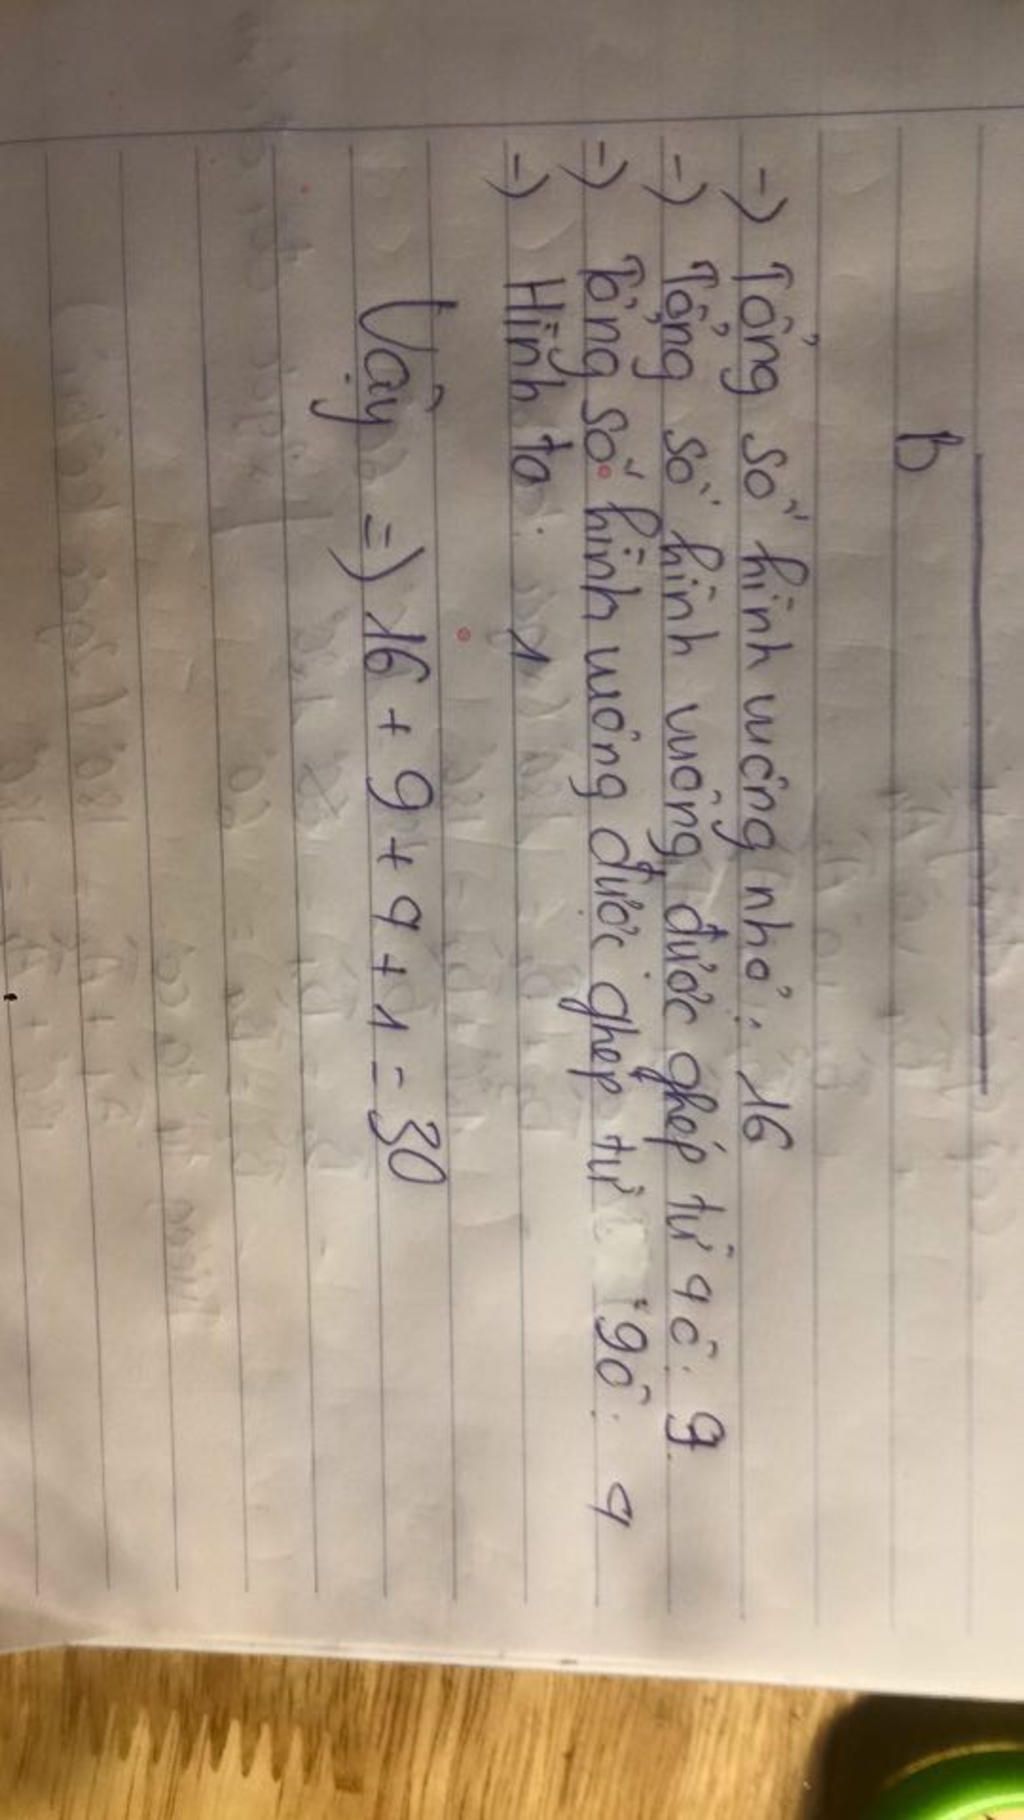 b
-) Tổng số hình vuông nhỏ: 16
-) Tổng số hình vuông được ghép từ 4 ô: 9
-) Tổng số hình vuông được ghép từ 9 ô: 4
-) Hình to: 1
Vậy =) 16 + 9 + 4 + 1 = 30